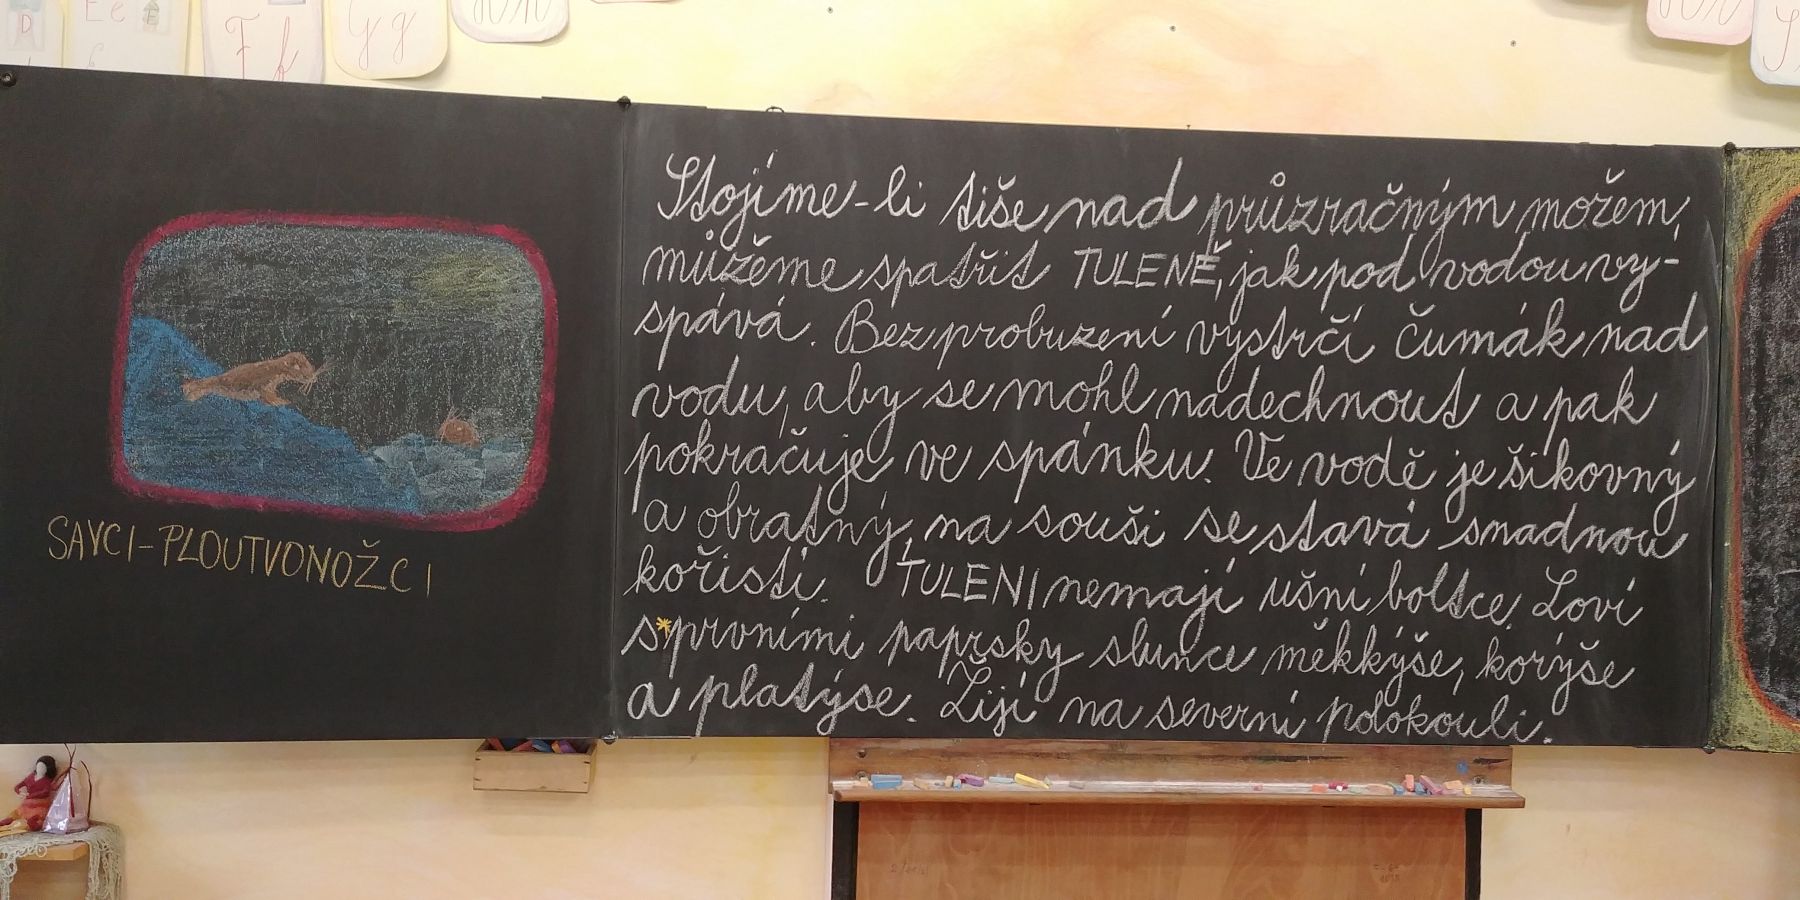 D
E e
E
F f
G g
SAVCI-PLOUTVONOŽCI
Stojíme-li tiše nad průzračným mořem,
můžeme spatřit TULENĚ, jak pod vodou vy-
spává. Bez probuzení vystrčí čumák nad
vodu, aby se mohl nadechnout a pak
pokračuje ve spánku. Ve vodě je šikovný
a obratný, na souši se stává snadnou
kořistí. TULENI nemají ušní boltce. Loví
s prvními paprsky slunce měkkýše, korýše
a platýse. Žijí na severní polokouli.